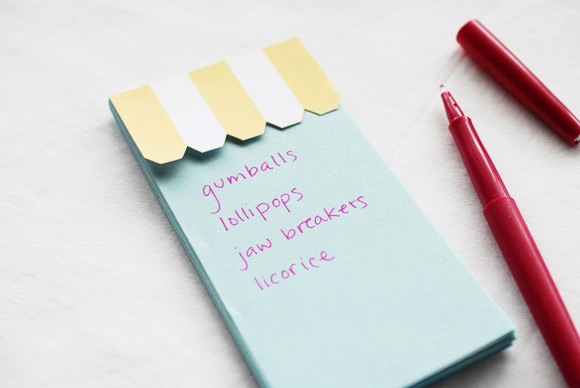 gumballs
lollipops
jaw breakers
licorice